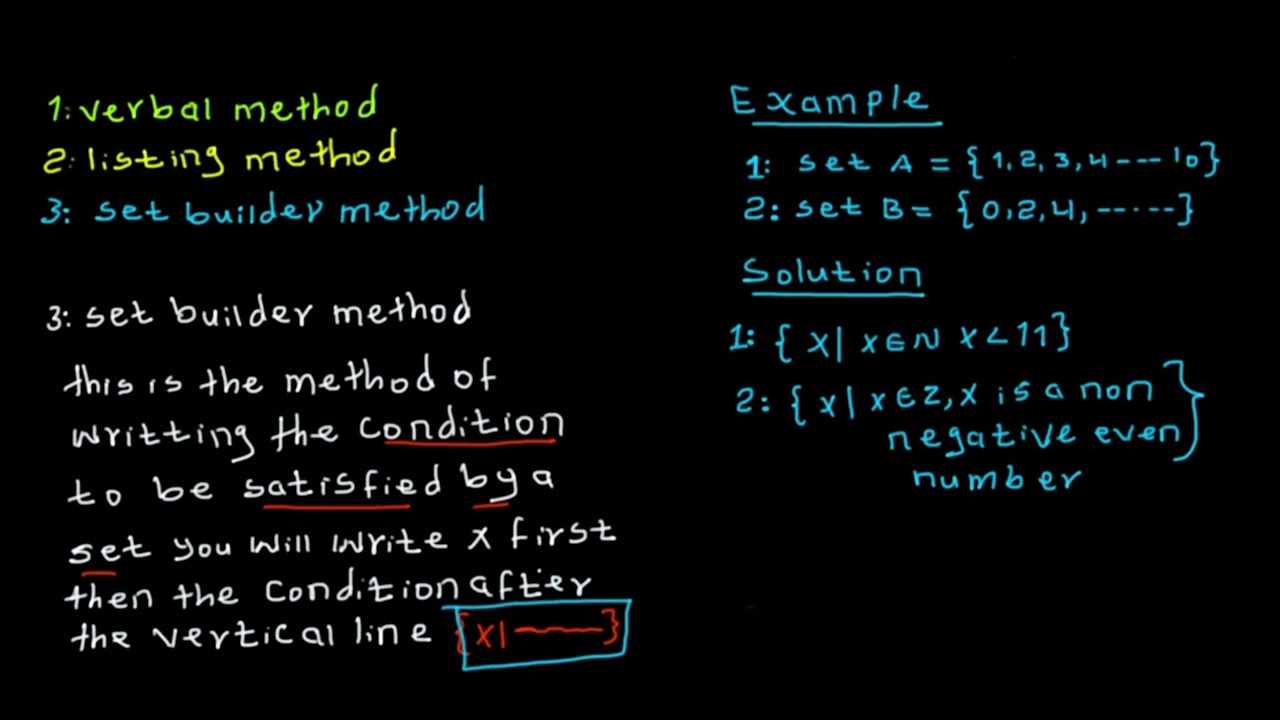 1: verbal method
2: listing method
3: set builder method
3: set builder method
this is the method of
writting the condition
to be satisfied by a
set you will write x first
then the condition after
the vertical line {x|———}
Example
1: set A = {1, 2, 3, 4 ---- 10}
2: set B = {0, 2, 4, ------}
Solution
1: { x | x ∈ N x < 11 }
2: { x | x ∈ Z, x is a non
negative even }
number